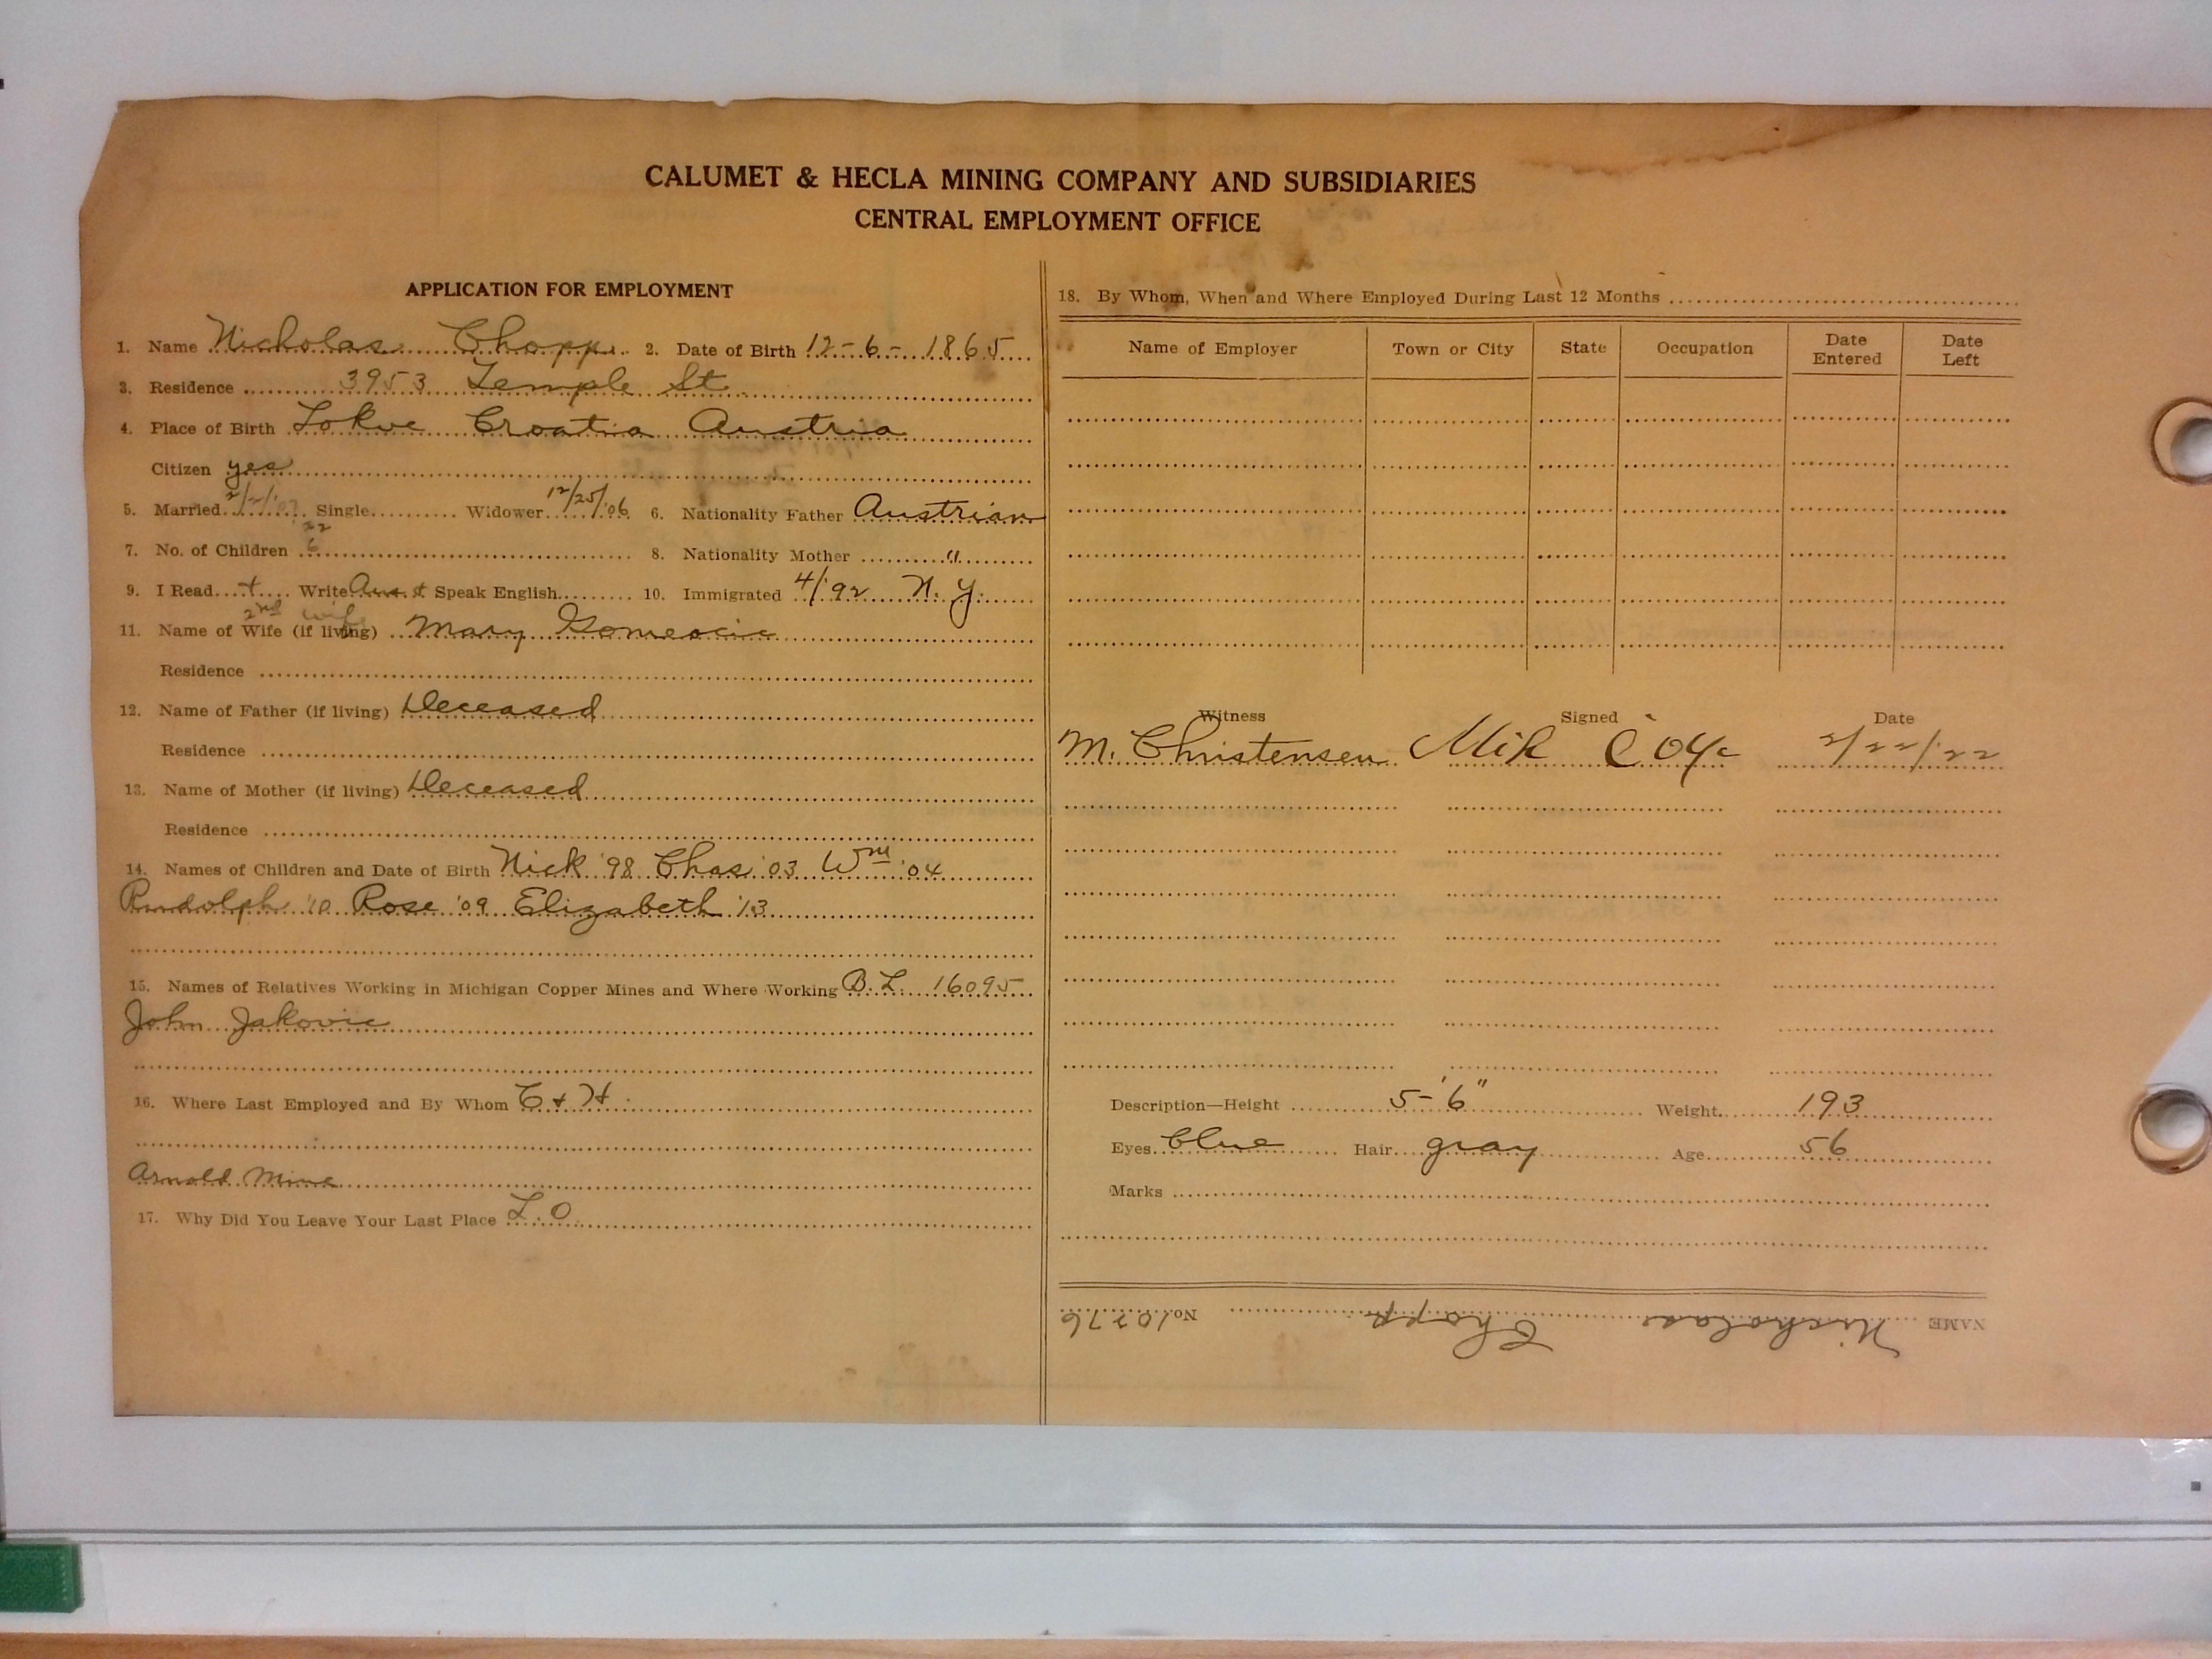 CALUMET & HECLA MINING COMPANY AND SUBSIDIARIES
CENTRAL EMPLOYMENT OFFICE
APPLICATION FOR EMPLOYMENT
1. Name Nicholas Chopp 2. Date of Birth 12-6-1865
3. Residence 3953 Temple St.
4. Place of Birth Lokve Croatia Austria
Citizen yes
5. Married 2/2/'07 Single Widower 12/25/'06 6. Nationality Father Austrian
7. No. of Children 6 8. Nationality Mother "
9. I Read + Write Aus. + Speak English 10. Immigrated 4/'92 N.Y.
2nd wife
11. Name of Wife (if living) Mary
Residence
12. Name of Father (if living) Deceased
Residence
13. Name of Mother (if living) Deceased
Residence
14. Names of Children and Date of Birth Nick '98 Chas '03 Wm '04
Rudolph '10 Rose '09 Elizabeth '13
15. Names of Relatives Working in Michigan Copper Mines and Where Working B.L. 16095
John Jakovic
16. Where Last Employed and By Whom C + H.
Arnold Mine
17. Why Did You Leave Your Last Place L.O.
18. By Whom, When and Where Employed During Last 12 Months
Name of Employer Town or City State Occupation Date Entered Date Left
Witness Signed Date
M. Christensen Mik 2/22/'22
Description—Height 5-'6" Weight 193
Eyes blue Hair gray Age 56
Marks
NAME Nicholas Chopp No. 10276